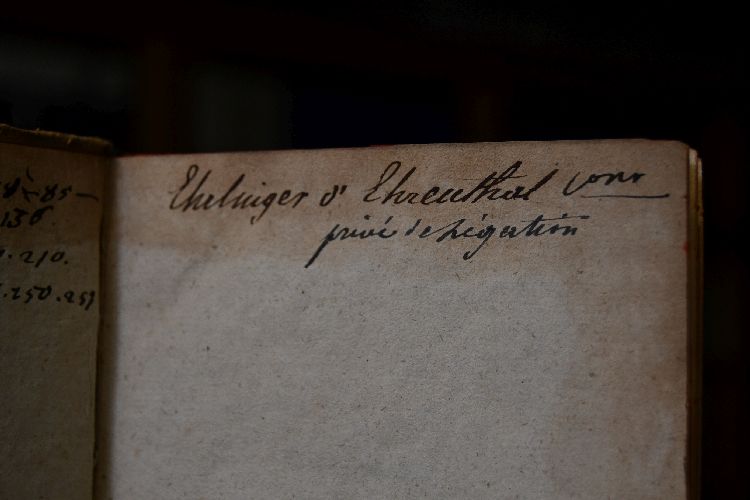 8-85-
136.
.210.
.250.259
Ehrlinger d' Ehrenthal Cons
privé de Légation